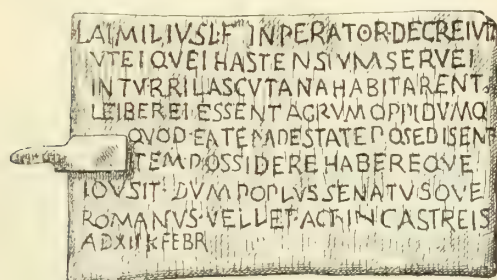 L·AIMILIVS·L·F· INPERATOR·DECREIVIT
VTEI QVEI HASTENSIVM SERVEI
IN TVRRI LASCVTANA HABITARENT
LEIBEREI ESSENT AGRVM OPPIDVMQ
QVOD EA TEMPESTATE POSEDISENT
ITEM POSSIDERE HABEREQVE
IOVSIT DVM POPLVS SENATVSQVE
ROMANVS VELLET ACT IN CASTREIS
A D XII K FEBR